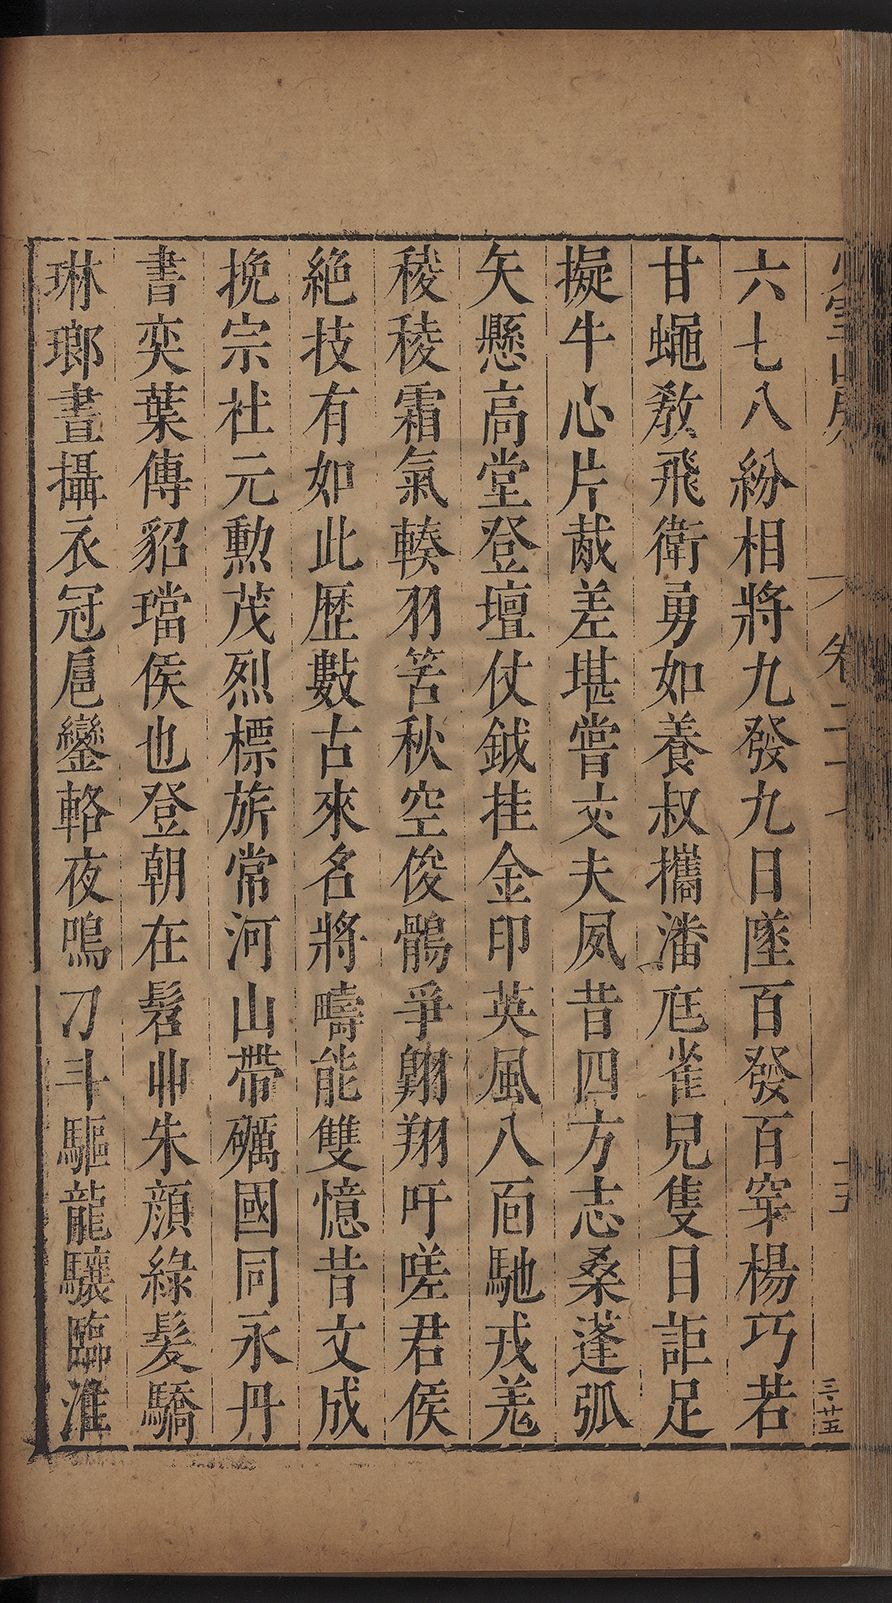 六七八紛相將九發九日墜百發百穿楊巧若
甘蠅教飛衛勇如養叔攜潘尫雀兒隻目詎足
擬牛心片胾差堪嘗丈夫夙昔四方志桑蓬弧
矢懸高堂登壇仗鉞挂金印英風八面馳戎羗
稜稜霜氣輳羽筈秋空俊鶻爭翱翔吁嗟君侯
絕技有如此歷數古來名將疇能雙憶昔文成
挽宗社元勲茂烈標旂常河山帶礪國同永丹
書奕葉傳貂璫侯也登朝在髫丱朱顏綠髮驕
琳瑯晝攝衣冠扈鑾輅夜鳴刀斗驅龍驤臨淮
卷二十七
十五
三·廿五